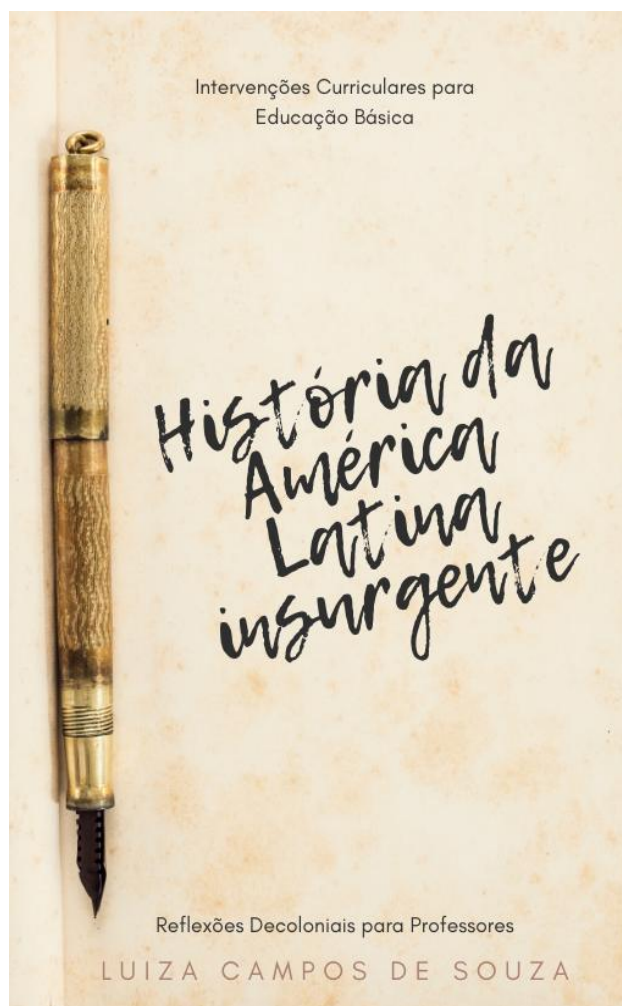 Intervenções Curriculares para
Educação Básica
História da
América
Latina
insurgente
Reflexões Decoloniais para Professores
LUIZA CAMPOS DE SOUZA